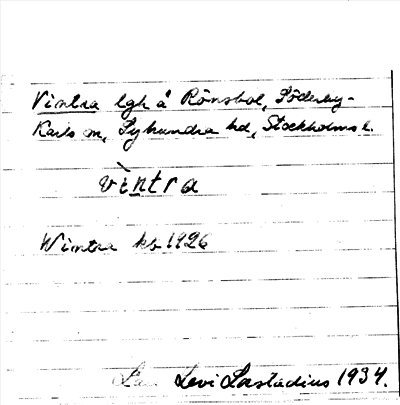 Vintra lgh å Rönsbol, Söderby-
Karls sn, Lyhundra hd, Stockholms l.
vìntra
Wintra kb 1926
Levi Læstadius 1934.